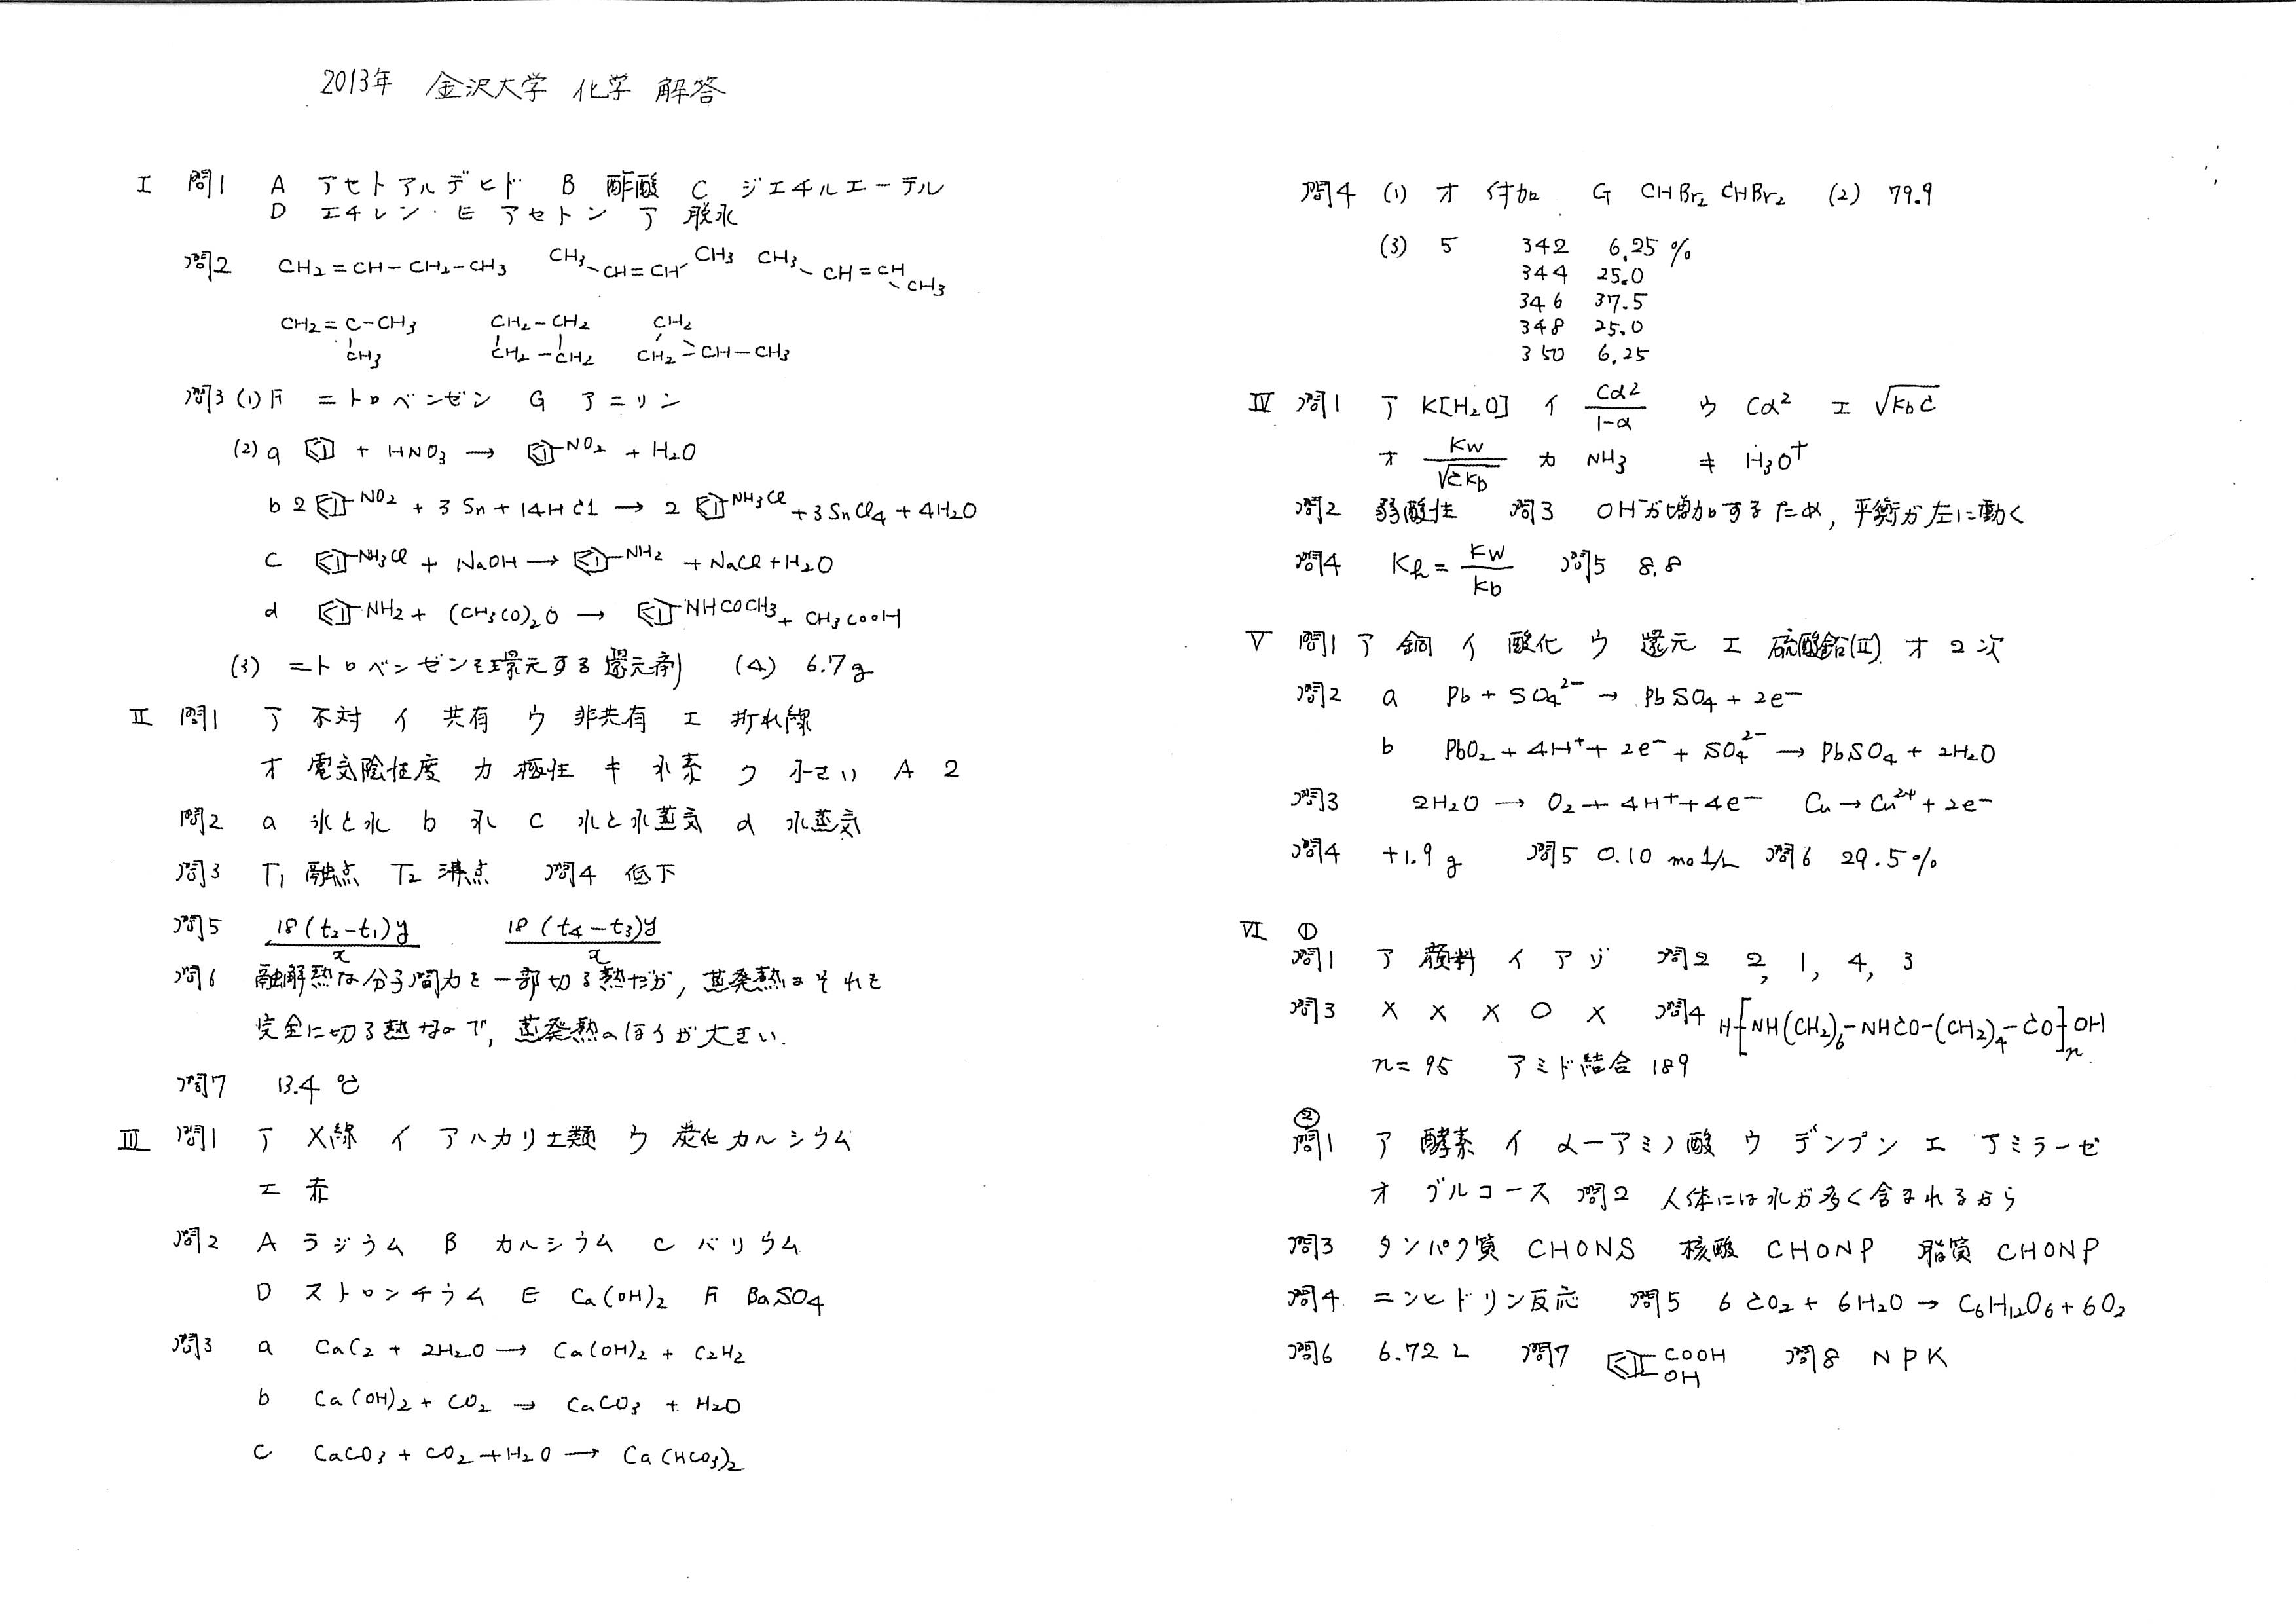 2013年 金沢大学 化学 解答
I 問1 A アセトアルデヒド B 酢酸 C ジエチルエーテル
D エチレン E アセトン ア 脱水
問2 CH₂=CH-CH₂-CH₃ CH₃-CH=CH-CH₃ CH₃-CH=CH-CH₃
CH₂=C-CH₃ CH₂-CH₂ CH₂
CH₃ CH₂-CH₂ CH₂>CH-CH₃
問3 (1) F ニトロベンゼン G アニリン
(2) a + HNO₃ → -NO₂ + H₂O
b 2 -NO₂ + 3Sn + 14HCl → 2 -NH₃Cl + 3SnCl₄ + 4H₂O
c -NH₃Cl + NaOH → -NH₂ + NaCl + H₂O
d -NH₂ + (CH₃CO)₂O → -NHCOCH₃ + CH₃COOH
(3) ニトロベンゼンを還元する還元剤 (4) 6.7g
II 問1 ア 不対 イ 共有 ウ 非共有 エ 折れ線
オ 電気陰性度 カ 極性 キ 水素 ク 小さい A 2
問2 a 氷と水 b 水 c 水と水蒸気 d 水蒸気
問3 T₁ 融点 T₂ 沸点 問4 低下
問5 18(t₂-t₁)y/x 18(t₄-t₃)y/x
問6 融解熱は分子間力を一部切る熱だが, 蒸発熱はそれを
完全に切る熱なので, 蒸発熱のほうが大きい.
問7 13.4℃
III 問1 ア X線 イ アルカリ土類 ウ 炭化カルシウム
エ 赤
問2 A ラジウム B カルシウム C バリウム
D ストロンチウム E Ca(OH)₂ F BaSO₄
問3 a CaC₂ + 2H₂O → Ca(OH)₂ + C₂H₂
b Ca(OH)₂ + CO₂ → CaCO₃ + H₂O
c CaCO₃ + CO₂ + H₂O → Ca(HCO₃)₂
問4 (1) オ 付加 G CHBr₂CHBr₂ (2) 79.9
(3) 5 342 6.25%
344 25.0
346 37.5
348 25.0
350 6.25
IV 問1 ア K[H₂O] イ Cα²/1-α ウ Cα² エ √KbC
オ Kw/√CKb カ NH₃ キ H₃O⁺
問2 弱酸性 問3 OH⁻が増加するため, 平衡が左に動く
問4 Kh = Kw/Kb 問5 8.8
V 問1 ア 銅 イ 酸化 ウ 還元 エ 硫酸鉛(II) オ 2次
問2 a Pb + SO₄²⁻ → PbSO₄ + 2e⁻
b PbO₂ + 4H⁺ + 2e⁻ + SO₄²⁻ → PbSO₄ + 2H₂O
問3 2H₂O → O₂ + 4H⁺ + 4e⁻ Cu → Cu²⁺ + 2e⁻
問4 +1.9g 問5 0.10 mol/L 問6 29.5%
VI ①
問1 ア 顔料 イ アゾ 問2 2, 1, 4, 3
問3 × × × ○ × 問4 H[NH(CH₂)₆-NHCO-(CH₂)₄-CO]nOH
n=95 アミド結合 189
②
問1 ア 酵素 イ α-アミノ酸 ウ デンプン エ アミラーゼ
オ グルコース 問2 人体には水が多く含まれるから
問3 タンパク質 CHONS 核酸 CHONP 脂質 CHONP
問4 ニンヒドリン反応 問5 6CO₂ + 6H₂O → C₆H₁₂O₆ + 6O₂
問6 6.72L 問7 COOH OH 問8 NPK